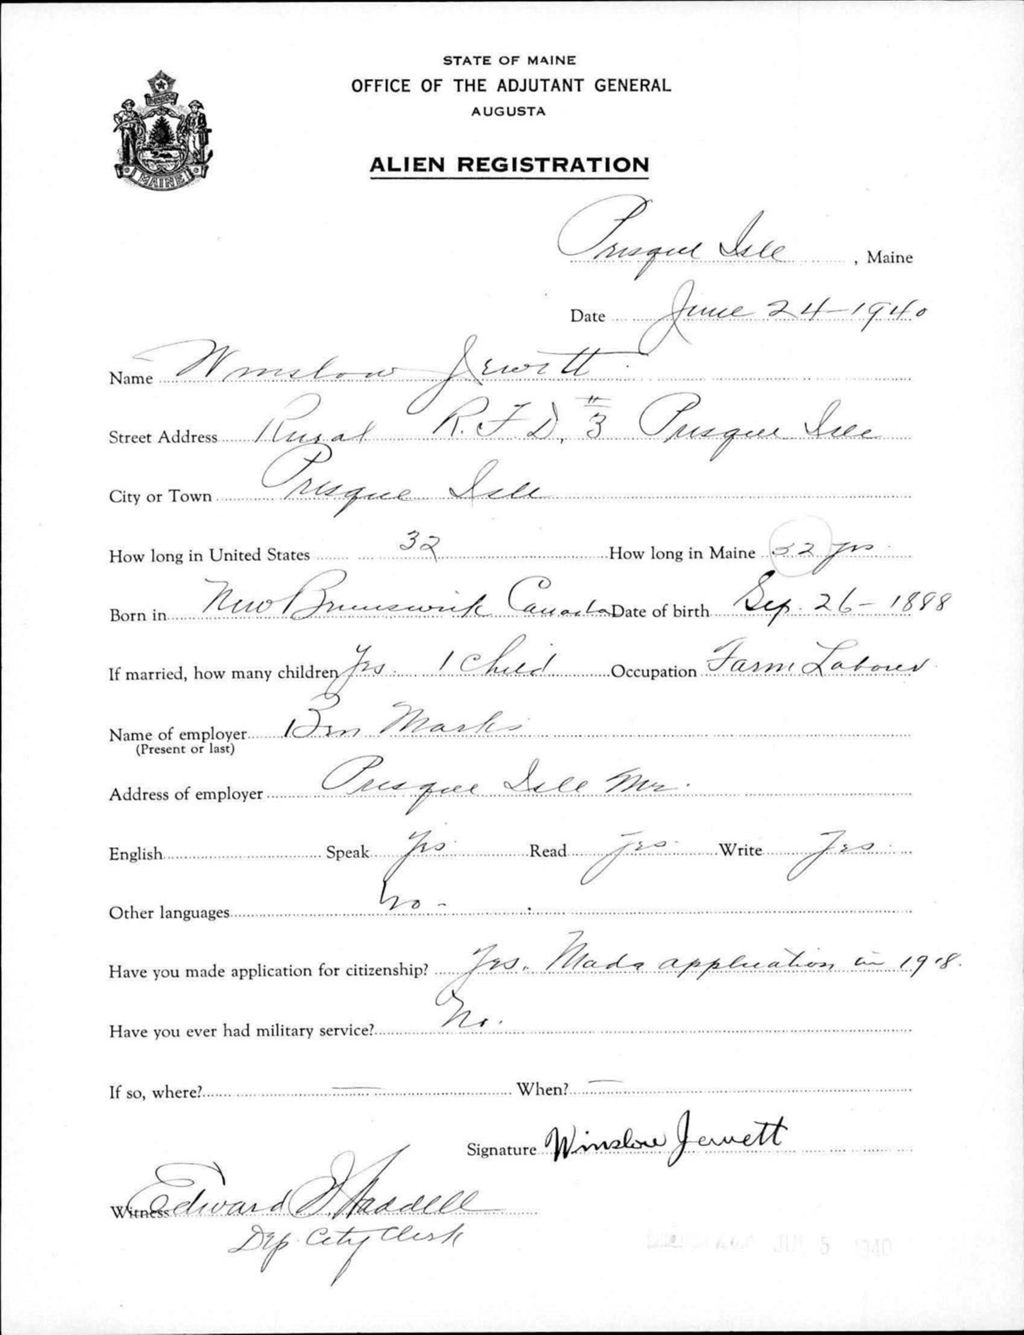 STATE OF MAINE
OFFICE OF THE ADJUTANT GENERAL
AUGUSTA
ALIEN REGISTRATION
MAINE
Presque Isle, Maine
Date June 24-1940
Name Winslow Jewett
Street Address Rural R.F.D. #3 Presque Isle
City or Town Presque Isle
How long in United States 32 How long in Maine 32 yrs
Born in New Brunswick Canada Date of birth Sep. 26-1898
If married, how many children Yes. 1 Child Occupation Farm Laborer
Name of employer Ben Marks
(Present or last)
Address of employer Presque Isle Me.
English Speak Yes Read Yes. Write Yes.
Other languages No -
Have you made application for citizenship? Yes. Made application in 1918.
Have you ever had military service? No.
If so, where? — When? —
Signature Winslow Jewett
Witness Edward Waddell
Dep. City Clerk
JUL 5 1940